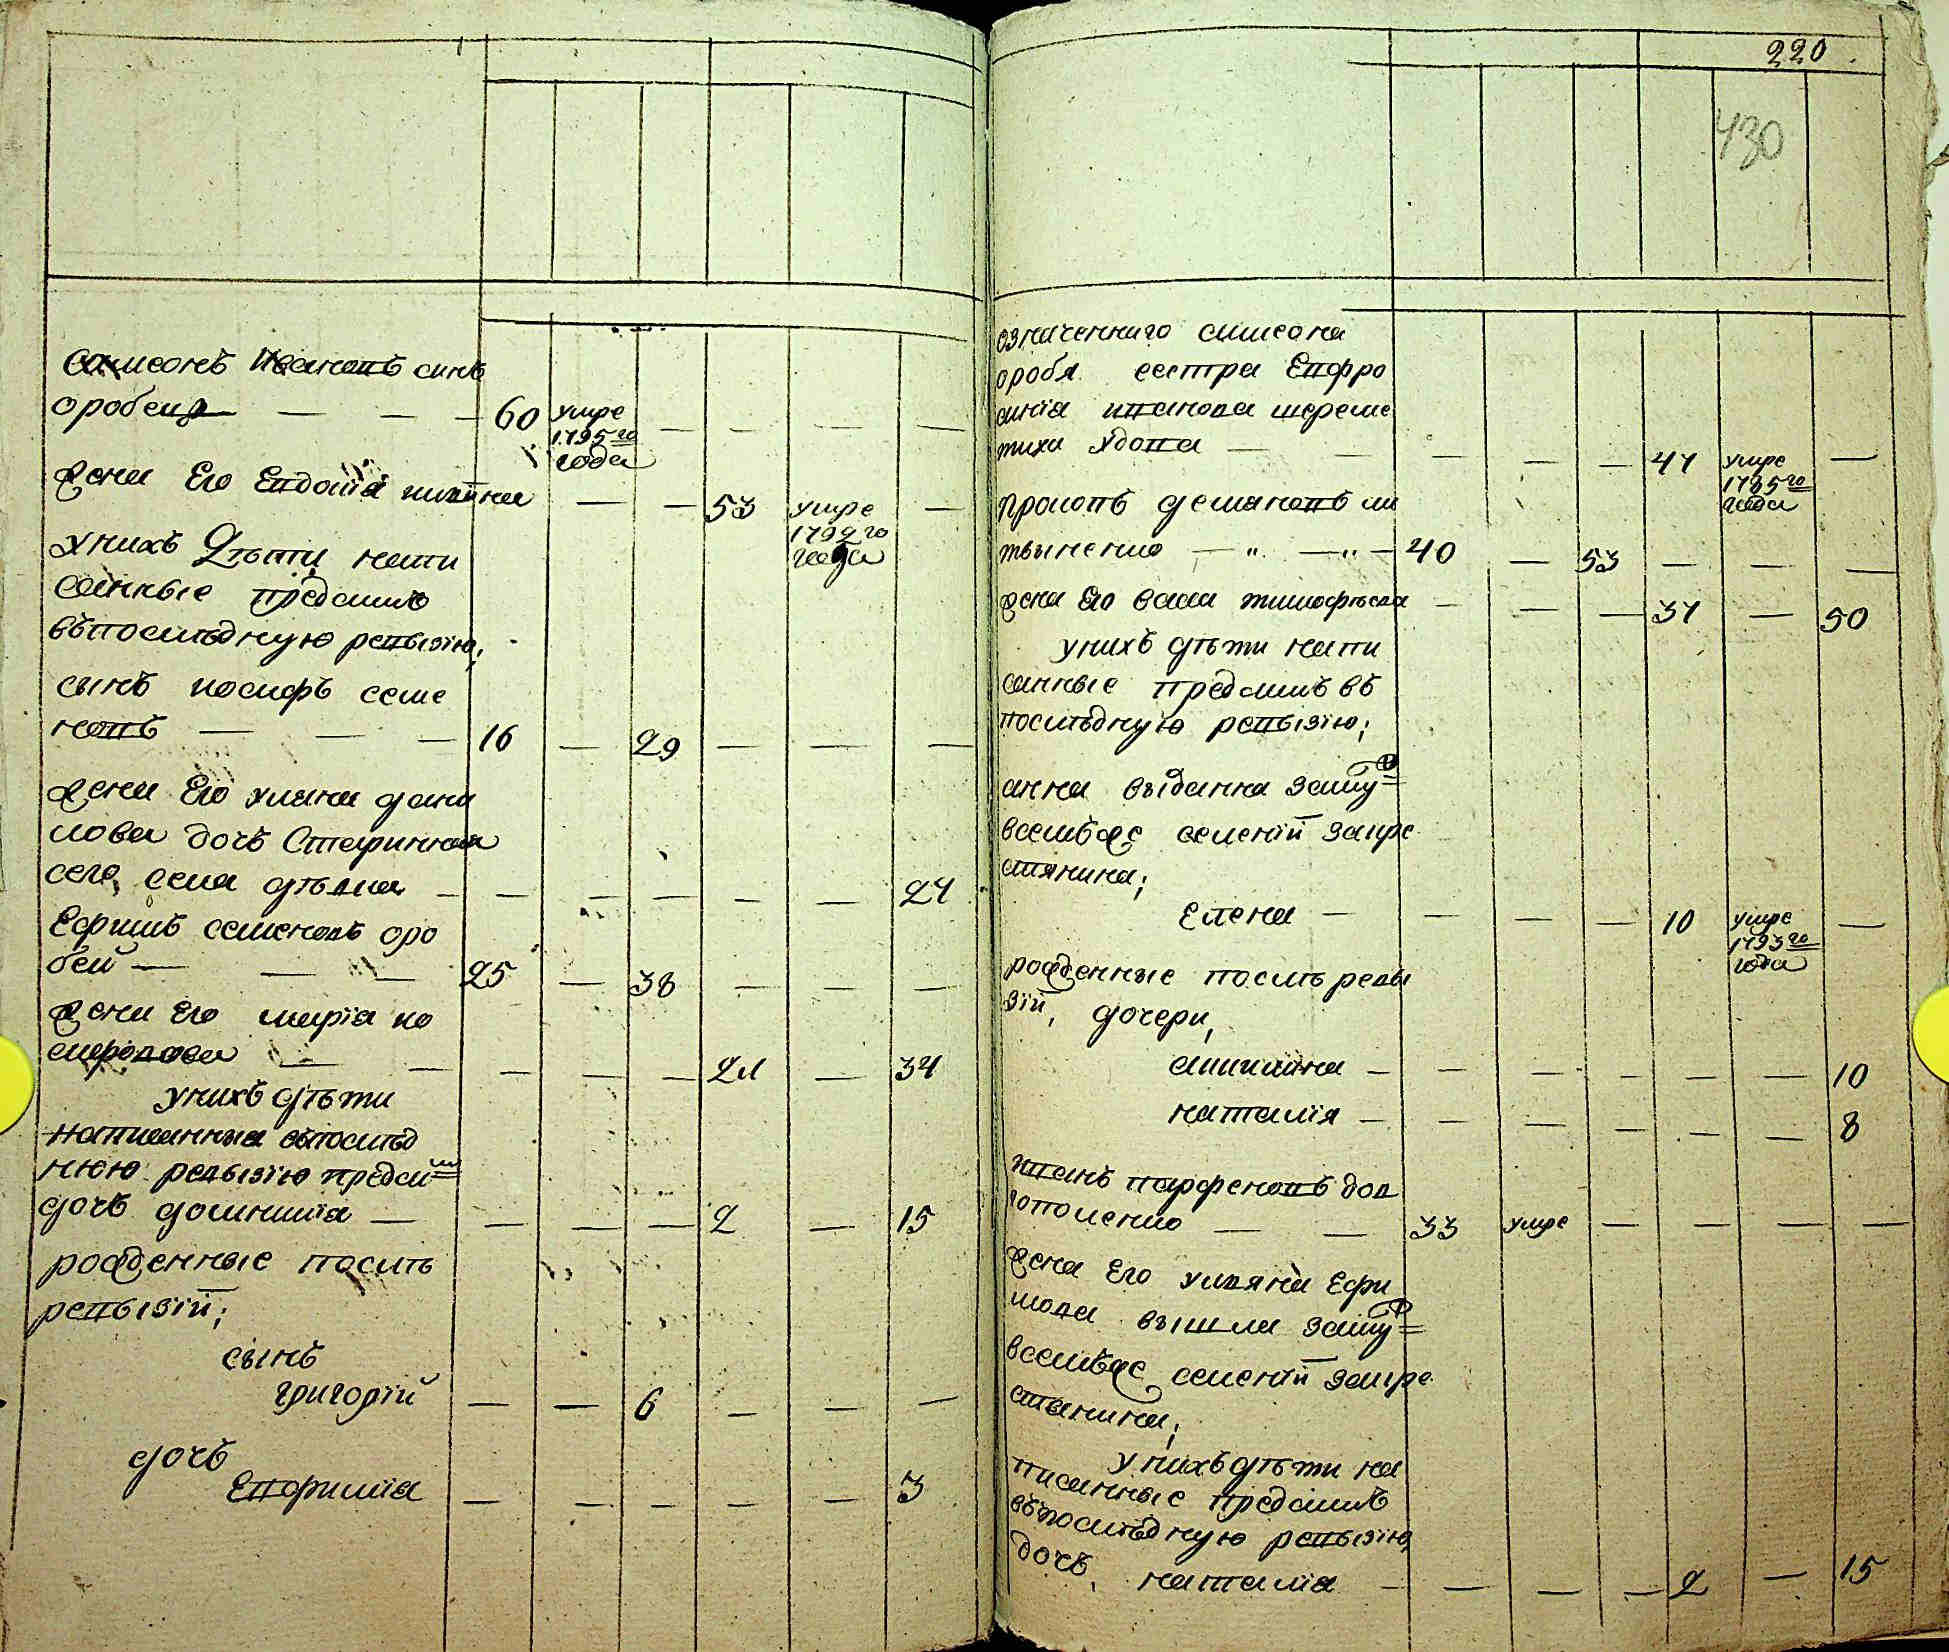 Симеонъ Ивановъ синъ
оробецъ — — — 60 умре 1795го года — — — —
жена Его Евдокія — — 53 умре 1792го года —
унихъ Дѣти напи
санные предсимъ
въпослѣдную ревызію;
сынъ иосифъ семе
новъ — — — 16 — 29 — — —
жена Его уляна дани
лова дочь Старинная
сего села дѣвка — — — — — — 24
Ефимъ семеновъ оро
бей — — — 25 — 38 — — —
жена Его марія но
— — — — — 21 — 34
унихъ дѣти
написанныя въпослѣд
нюю ревызію предсим
дочь домникія — — — — 2 — 15
рожденные послѣ
ревызіи;
сынъ
григорій — — 6 — — —
дочь
Евфимія — — — — — 3
220
430
означеннаго симеона
оробя сестра Евфро
синія иванова шереме
тиха удова — — — — 41 умре 1785го года —
прокопъ демяновъ ли
твиненко — „ — „ — 40 — 53 — — —
жена Его васса тимофѣева — — — 37 — 50
унихъ дѣти напи
санные предсимъ въ
послѣдную ревызію;
анна выданна заму
всемъже селеніи закре
стянина;
Елена — — — — 10 умре 1793го года —
рожденные послѣ ревы
зіи, дочери,
акилина — — — — — — 10
наталія — — — — — — 8
иванъ парфеновъ дов
гополенко — — 33 умре — — — —
жена Его уляна Ефи
мова вышла заму
всемъже селеніи закре
стянина;
унихъ дѣти на
писанные предсимъ
въпослѣдную ревызію,
дочь, наталія — — — — 2 — 15